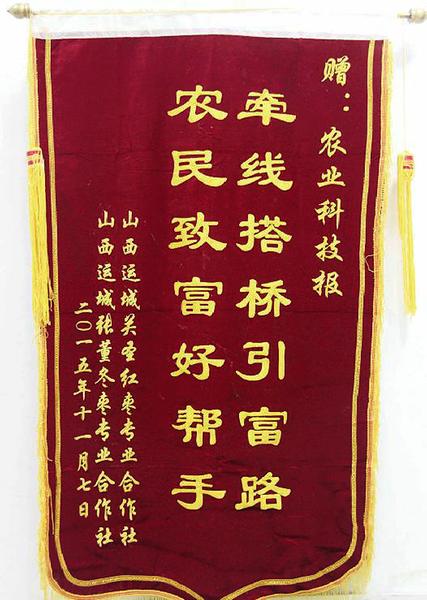 赠：农业科技报
牵线搭桥引富路
农民致富好帮手
山西运城关圣红枣专业合作社
山西运城张董冬枣专业合作社
二〇一五年十一月七日